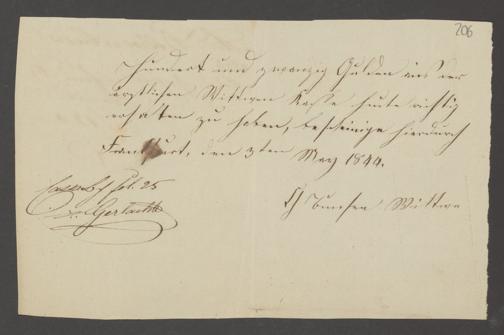 206
Hundert und zwanzig Gulden aus der
ärztlichen Wittwen Kasse heute richtig
erhalten zu haben, bescheinige hierdurch
Frankfurt, den 3ten May 1844.
fol. 25
Gerlach
Bunsen Wittwe